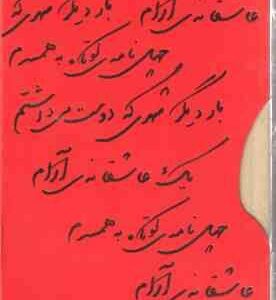 عاشقانه‌ی آرام     بار دیگر شهری که
چهل نامه‌ی کوتاه به همسرم
بار دیگر شهری که دوست می‌داشتم
یک عاشقانه‌ی آرام
چهل نامه‌ی کوتاه به همسرم
عاشقانه‌ی آرام